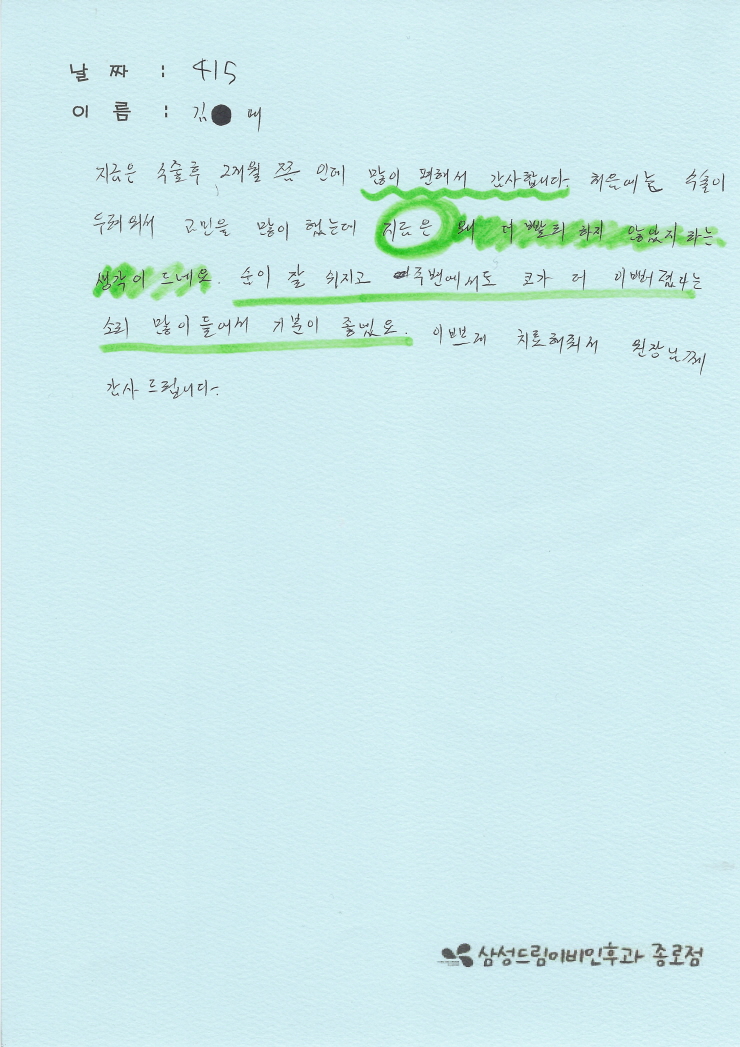 날 짜 : 415
이 름 : 김 매
지금은 수술후 2개월 쯤 인데 많이 편해서 감사합니다. 처음에는 수술이
두려워서 고민을 많이 했는데 지금은 왜 더 빨리 하지 않았지 라는
생각이 드네요. 숨이 잘 쉬지고 주변에서도 코가 더 이뻐졌다는
소리 많이 들어서 기분이 좋네요. 이쁘게 치료해줘서 원장님께
감사 드립니다.
삼성드림이비인후과 종로점